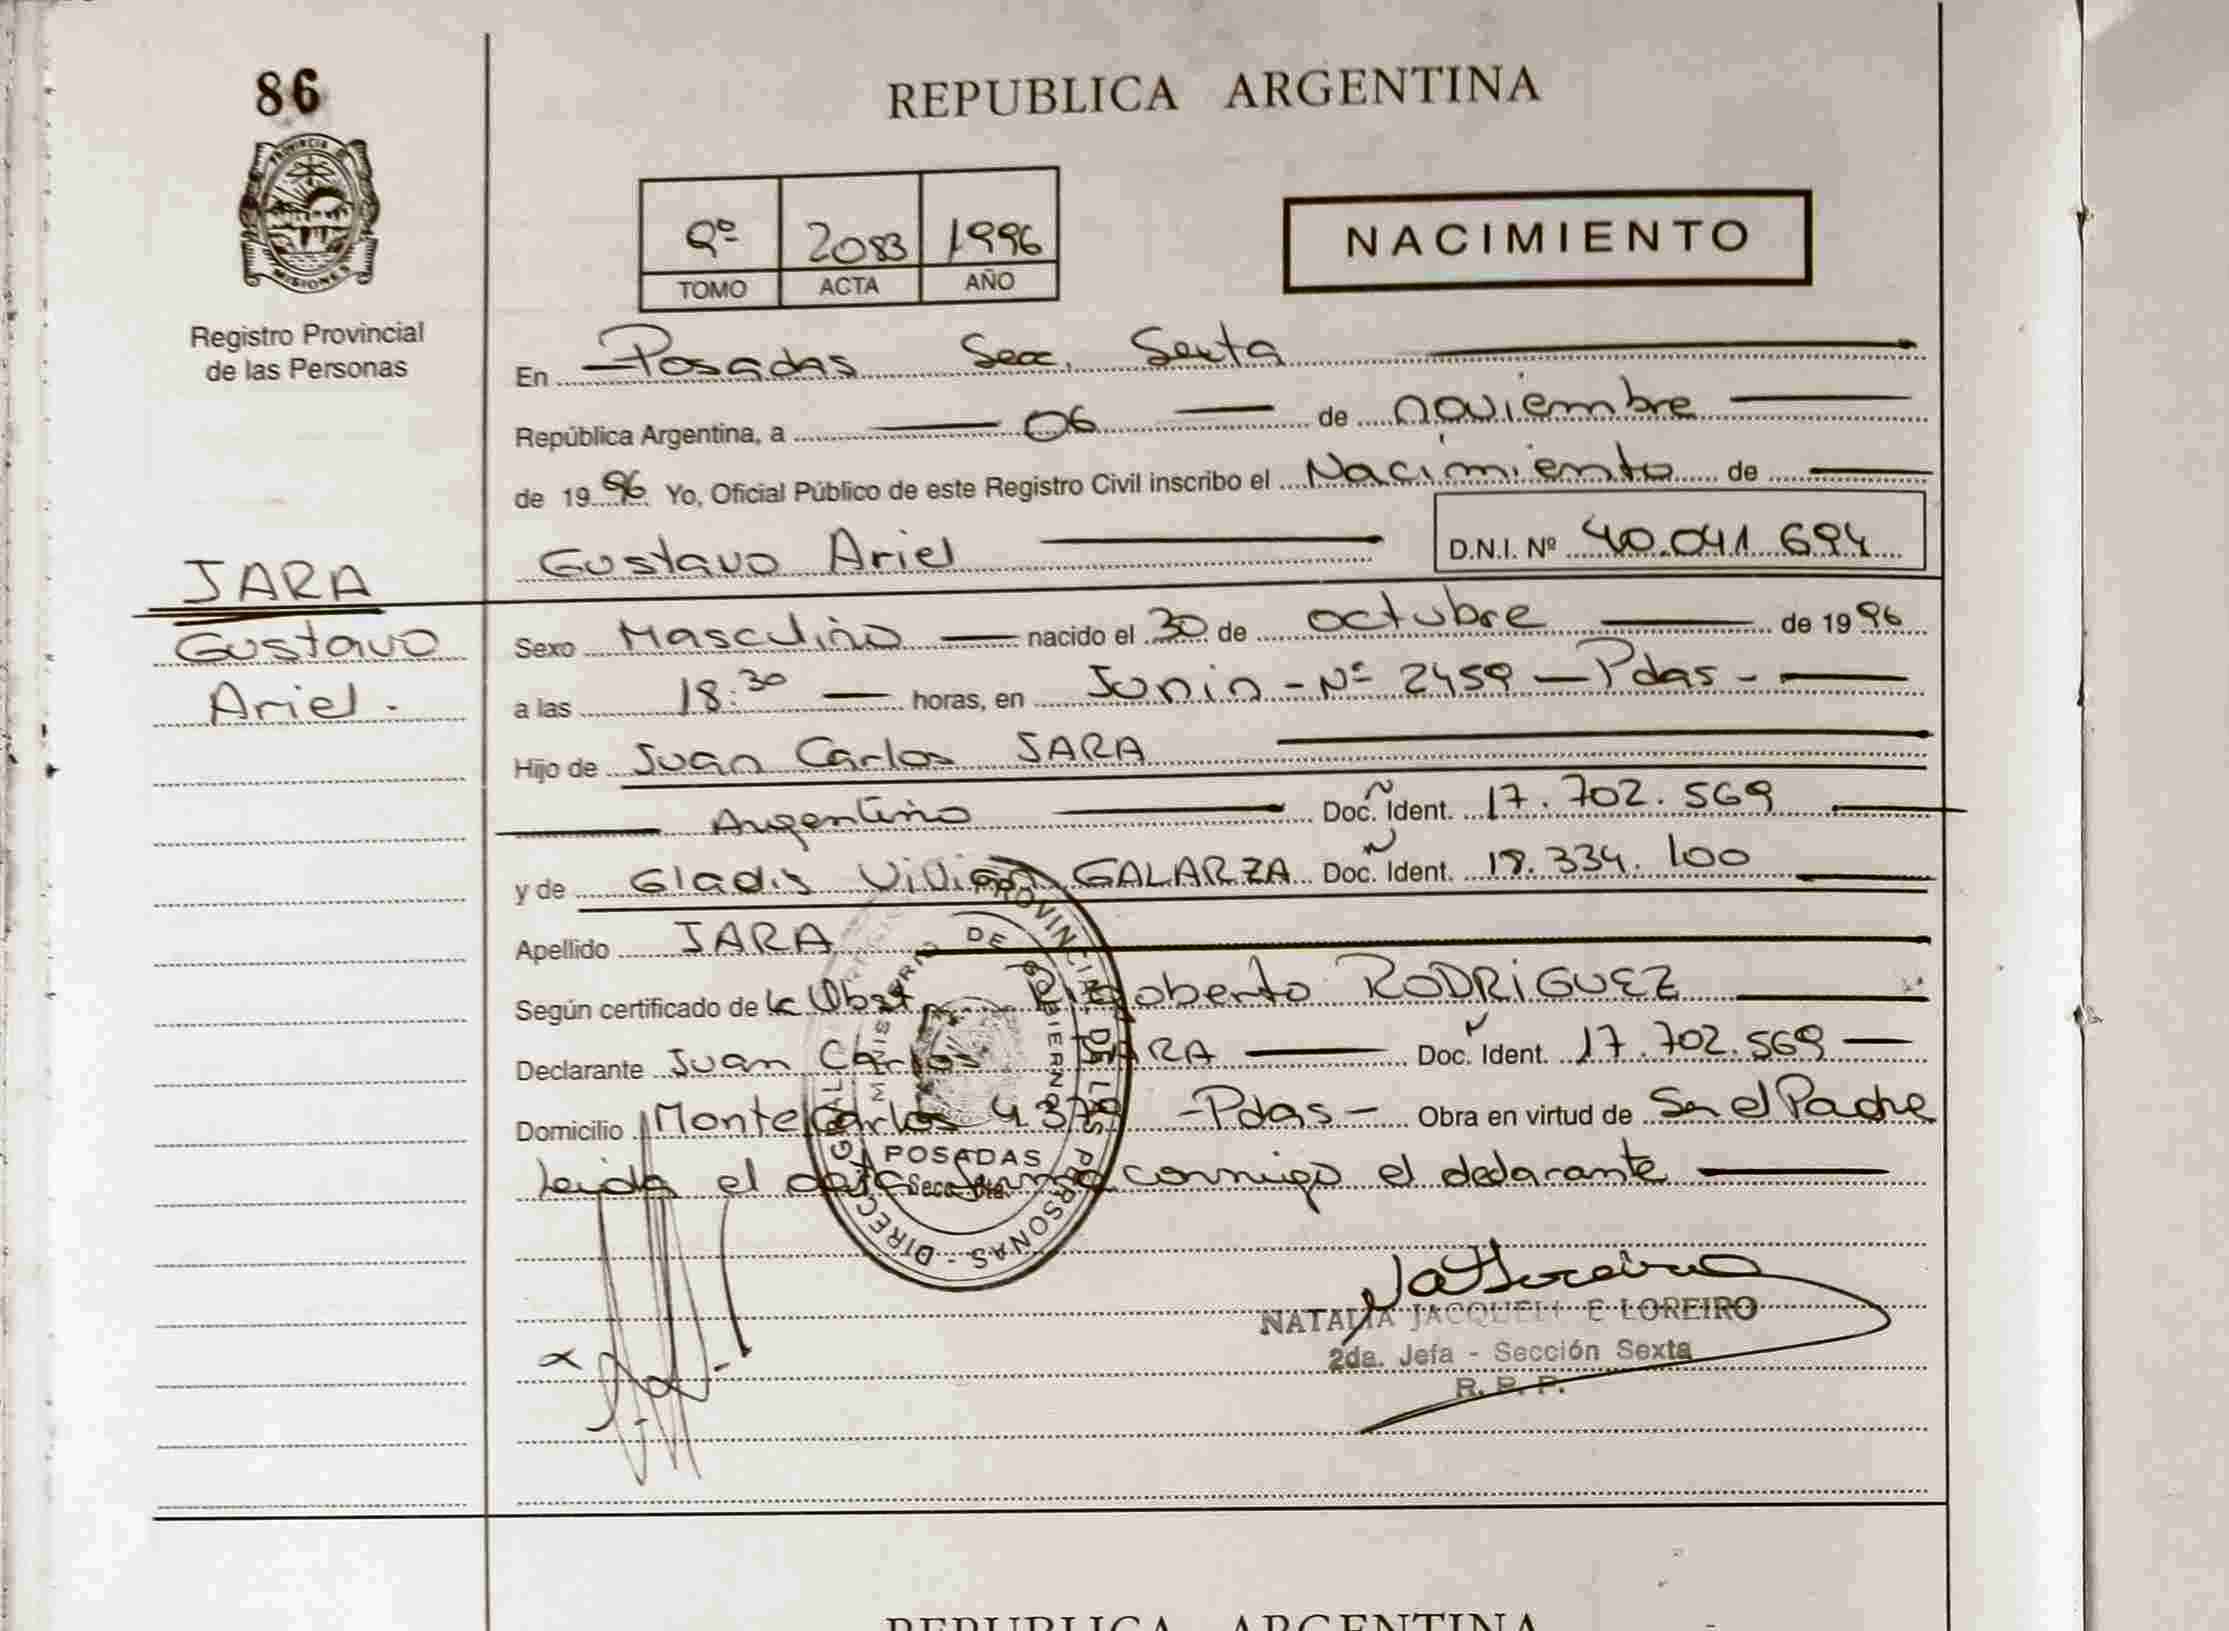 86
PROVINCIA DE
MISIONES
Registro Provincial
de las Personas
JARA
Gustavo
Ariel.
REPUBLICA ARGENTINA
9º 2083 1996
TOMO ACTA AÑO
NACIMIENTO
En Posadas Secc. Sexta
República Argentina, a 06 de noviembre
de 1996 Yo, Oficial Público de este Registro Civil inscribo el Nacimiento de
Gustavo Ariel D.N.I. Nº 40.041.694
Sexo Masculino nacido el 30 de octubre de 1996
a las 18:30 horas, en Junin - Nº 2459 - Pdas -
Hijo de Juan Carlos JARA
Argentino Doc. Ident. 17.702.569
y de Gladis Vivian GALARZA Doc. Ident. 18.334.100
Apellido JARA
Según certificado de la Obst. Rigoberto RODRIGUEZ
Declarante Juan Carlos JARA Doc. Ident. 17.702.569
Domicilio Montecarlos 4379 -Pdas- Obra en virtud de Ser el Padre
Leida el acta firma conmigo el declarante
DIRECC. GRAL. PROVINCIAL DE LAS PERSONAS
MINISTERIO DE GOBIERNO
POSADAS
Secc. 6ta.
NATALIA JACQUELINE LOREIRO
2da. Jefa - Sección Sexta
R. P. P.
REPUBLICA ARGENTINA